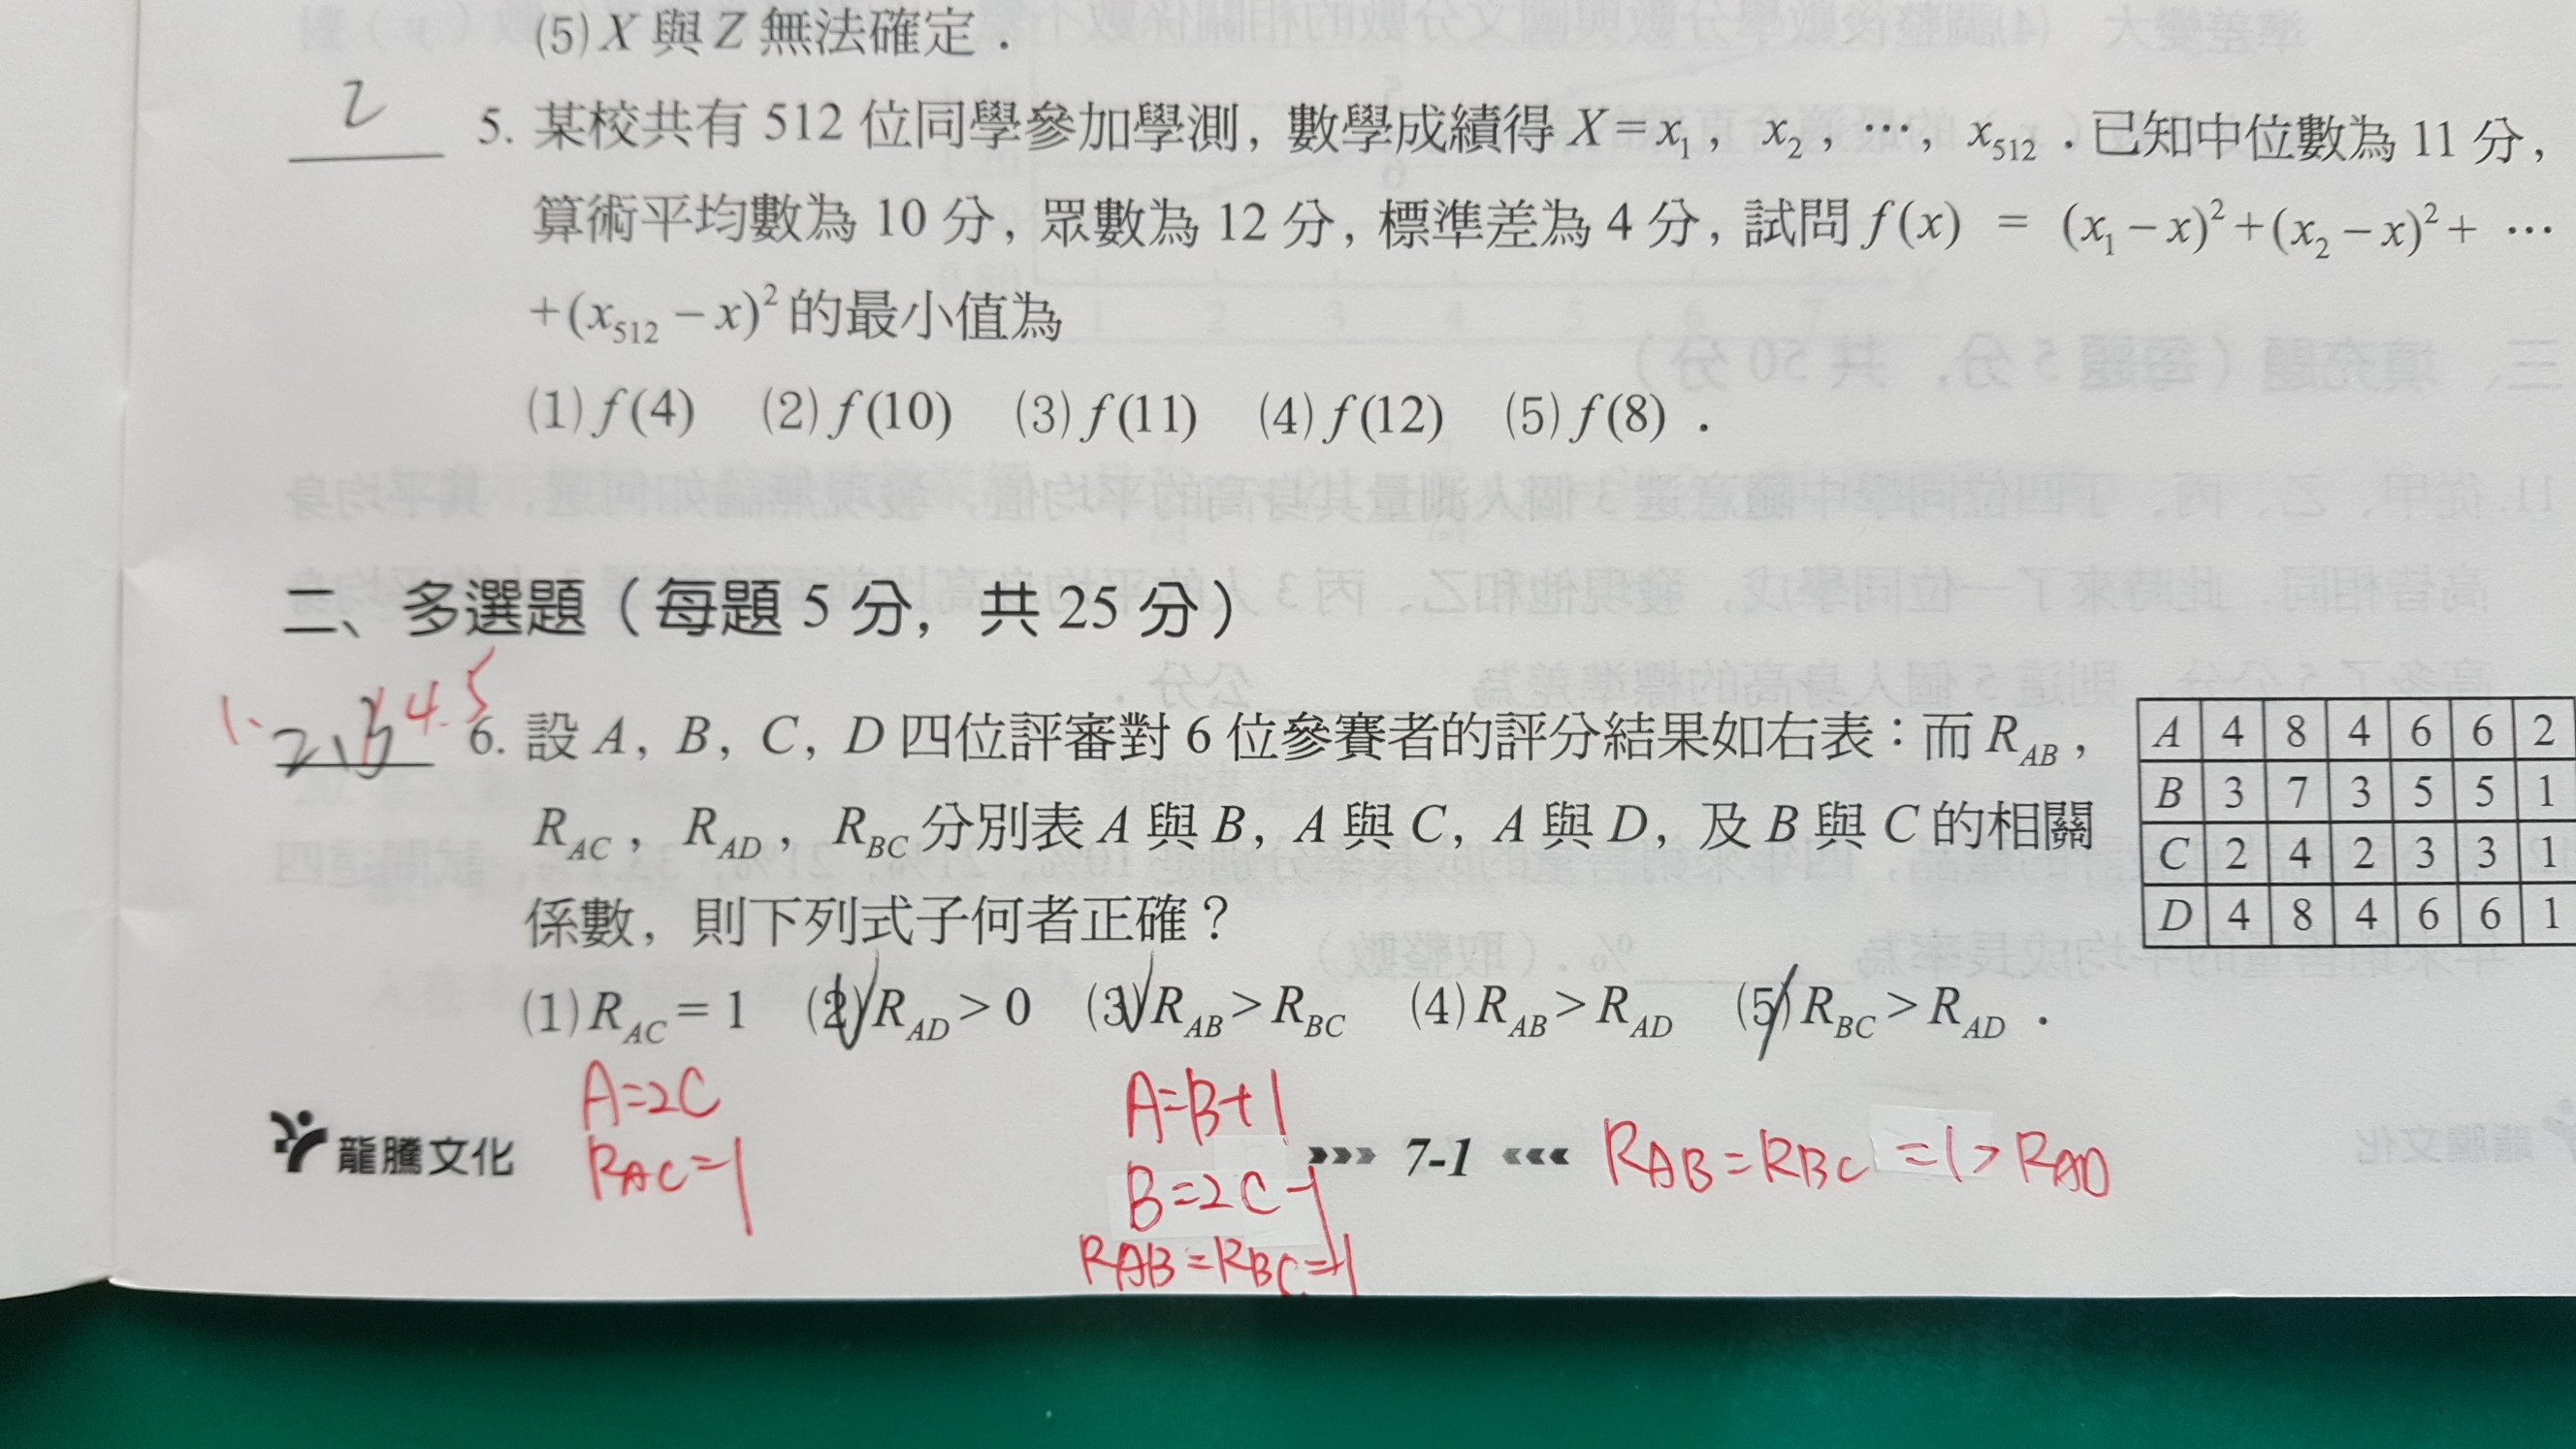 (5) X 與 Z 無法確定．
2
5. 某校共有 512 位同學參加學測，數學成績得 X = x₁，x₂，…，x₅₁₂．已知中位數為 11 分，
算術平均數為 10 分，眾數為 12 分，標準差為 4 分，試問 f(x) = (x₁ − x)² + (x₂ − x)² + …
+ (x₅₁₂ − x)² 的最小值為
(1) f(4) (2) f(10) (3) f(11) (4) f(12) (5) f(8)．
二、多選題（每題 5 分，共 25 分）
1. 2,3 4. 5
6. 設 A，B，C，D 四位評審對 6 位參賽者的評分結果如右表：而 R_AB，
R_AC，R_AD，R_BC 分別表 A 與 B，A 與 C，A 與 D，及 B 與 C 的相關
係數，則下列式子何者正確？
(1) R_AC = 1 (2) R_AD > 0 (3) R_AB > R_BC (4) R_AB > R_AD (5) R_BC > R_AD．
A 4 8 4 6 6 2
B 3 7 3 5 5 1
C 2 4 2 3 3 1
D 4 8 4 6 6 1
A=2C
R_AC=1
A=B+1
B=2C-1
R_AB=R_BC=1
R_AB=R_BC=1>R_AD
龍騰文化
7-1